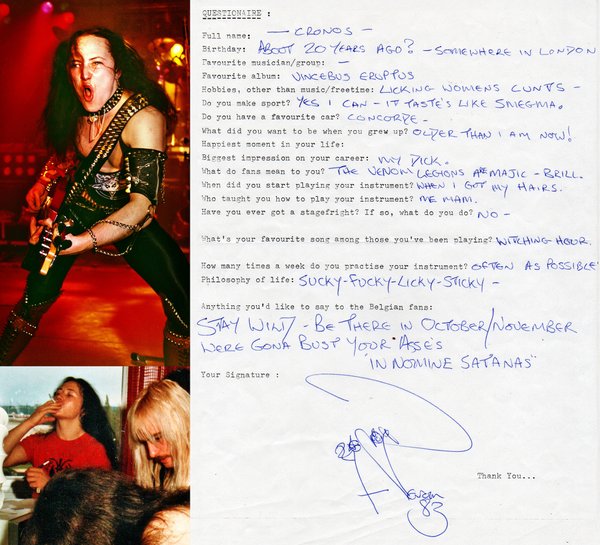 QUESTIONAIRE :
Full name: — CRONOS —
Birthday: ABOUT 20 YEARS AGO? - SOMEWHERE IN LONDON
Favourite musician/group: -
Favourite album: VINCEBUS ERUPTUS
Hobbies, other than music/freetime: LICKING WOMENS CUNTS -
Do you make sport? YES I CAN - IT TASTE'S LIKE SMEGMA.
Do you have a favourite car? CONCORDE -
What did you want to be when you grew up? OLDER THAN I AM NOW!
Happiest moment in your life:
Biggest impression on your career: MY DICK.
What do fans mean to you? THE VENOM LEGIONS ARE MAJIC - BRILL.
When did you start playing your instrument? WHEN I GOT MY HAIRS.
Who taught you how to play your instrument? ME MAM.
Have you ever got a stagefright? If so, what do you do? NO -
What's your favourite song among those you've been playing? WITCHING HOUR.
How many times a week do you practise your instrument? OFTEN AS POSSIBLE
Philosophy of life: SUCKY-FUCKY-LICKY-STICKY -
Anything you'd like to say to the Belgian fans:
STAY - BE THERE IN OCTOBER/NOVEMBER
WERE GONA BUST YOUR ASSES
"IN NOMINE SATANAS"
Your Signature :
Thank You...
Venom
83